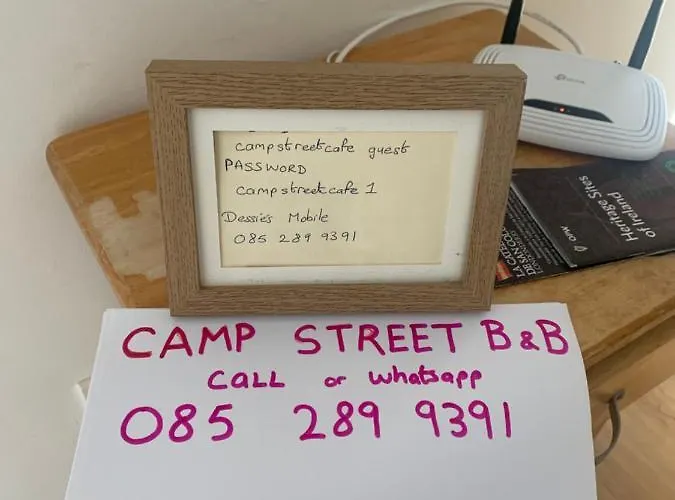 campstreetcafe guest
PASSWORD
campstreetcafe 1
Dessie's Mobile
085 289 9391
CAMP STREET B&B
CALL or whatsapp
085 289 9391
tp-link
Heritage Sites
of Ireland
OPW